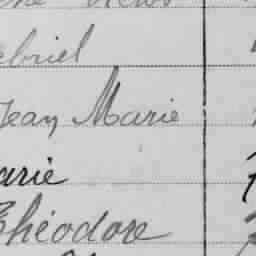 ebriel
Jean Marie
arie
Théodore